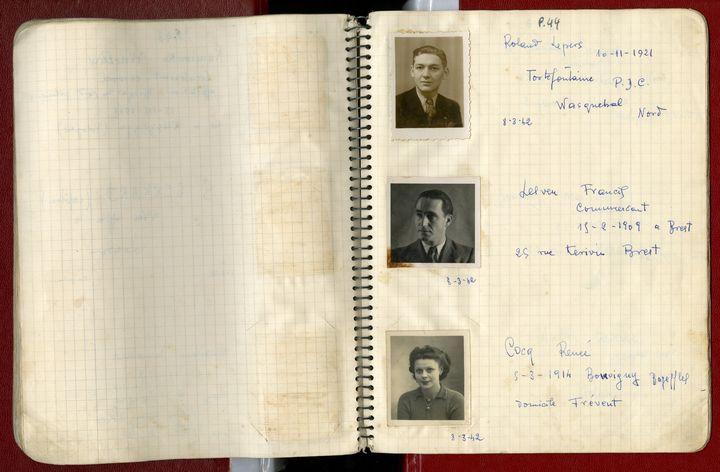 P.44
Roland Lepers 10-11-1921
Tortefontaine P.J.C.
Wasquehal Nord
8-3-42
Francis
Commercant
15-2-1909 a Brest
25 rue Kerivin Brest
8-3-42
Cocq Renée
5-3-1914 Bouvigny
domicile Frévent
8-3-42